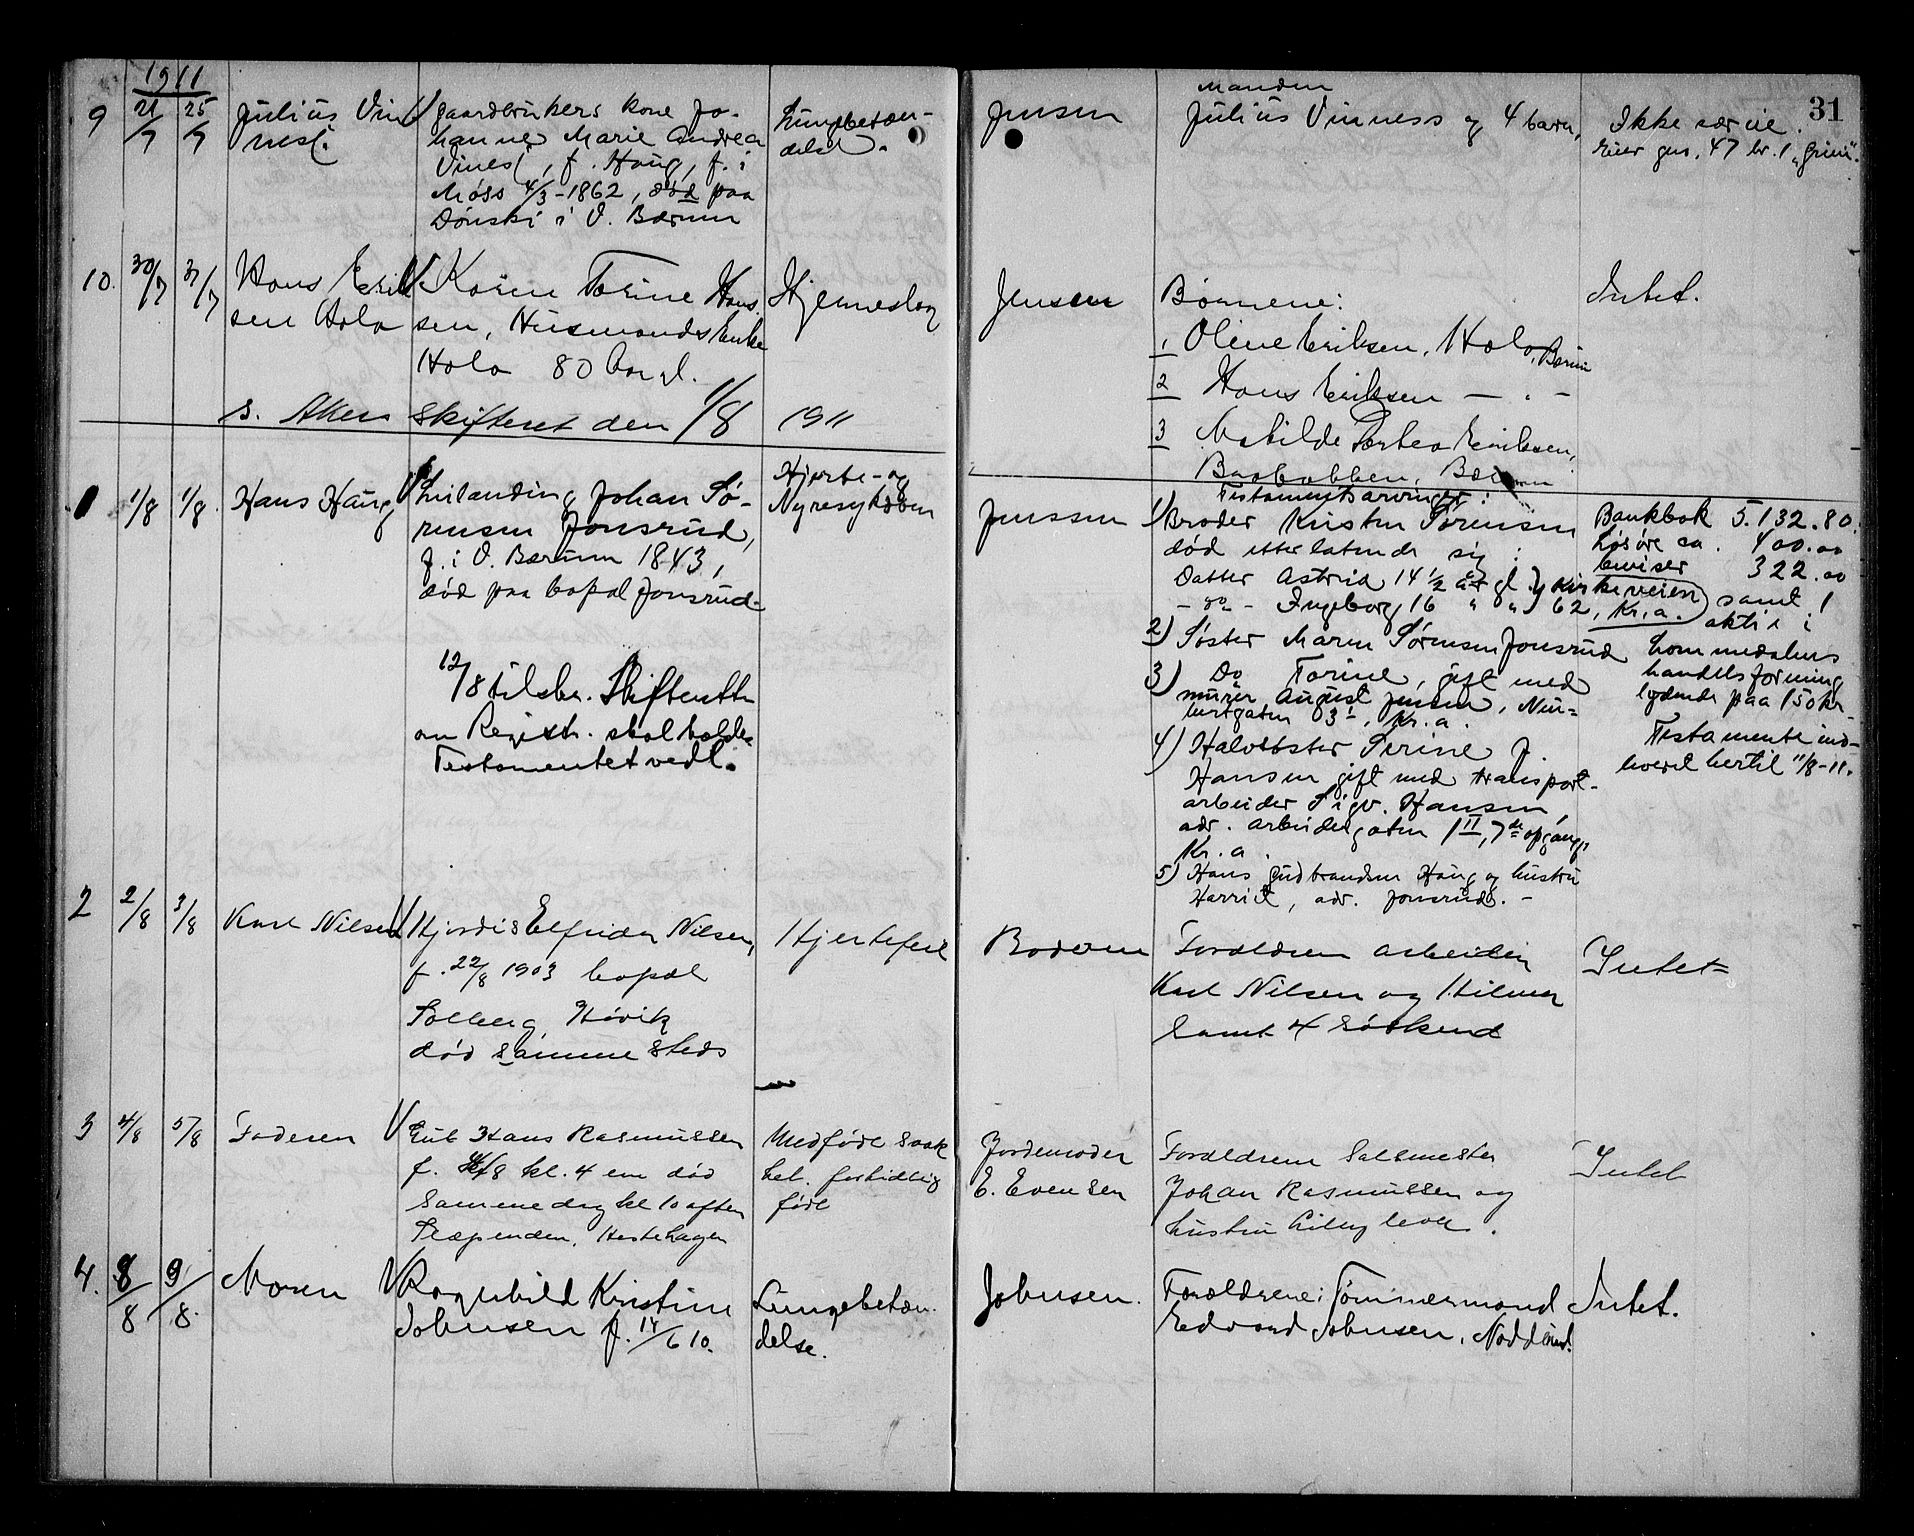 1911
31
9 21/7 25/7 Julius Vin
nes.
gaardbrukers kone Jo-
hanne Marie Andrea
Vines, f. Haug, f. i
Moss 4/3-1862, død paa
Dønski i V. Bærum
Lungebetæn-
delse.
Jensen
Manden
Julius Vinness og 4 barn,
Ikke særeie.
Eier gnr. 47 br. 1 "Grini".
10. 30/7 31/7 Hans Erik
sen Hola
Karen Torine Han
sen, Husmandsenke
Hola 80 Aar gl.
Hjerneslag
Jensen
Børnene:
1 Oline Eriksen, Hola, Bærum
2 Hans Eriksen — " -
3 Matilde Dortea Eriksen,
Baabakken, Bærum
Intet.
s. Akers Skifteret den 1/8 1911
1 1/8 1/8. Hans Haug
Inderst Johan Sø-
rensen Jonsrud,
f. i V. Bærum 1843,
død paa bopæl Jonsrud-
12/8 tilskr. Skifteretten
om Registr. skal holdes
Testamentet vedl.
Hjerte- og
Nyresykdom
Jenssen
Testamentsarvinger:
1) Broder Kristen Sørensen
død efterlatende sig:
Datter Astrid 14 1/2 år gl. } Kirkeveien
- do - Ingeborg 16 " " } 62, Kr.a.
2) Søster Maren Sørensen Jonsrud
3) Do Torine, gift med
murer August Jensen,
gaten 3 I, Kr.a.
4) Halvsøster Serine f.
Hansen gift med transport-
arbeider Sigv. Hansen,
adr. Arbeidergaten 1 II, 7de opgang,
Kr.a.
5) Hans Gudbrandsen Haug og hustru
Harriet, adr. Jonsrud. -
Bankbok 5.132.80.
Løsøre ca. 400.00
beviser 322.00
samt 1
aktie i
Lommedalens
handelsforening
lydende paa 150 kr.
Testamente ind-
leveret hertil 11/8-11.
2 2/8 3/8 Karl Nilsen
Hjørdis Elfrida Nilsen,
f. 22/8 1903 bopæl
Solberg, Høvik
død samme steds
Hjertefeil
Bodom
Forældren arbeider
Karl Nilsen og Hilma
samt 4 søskend
Intet-
3 4/8 5/8 Faderen
Gut Hans Rasmussen
f. 4/8 kl. 4 em død
samme dag kl 10 aften
Slæpenden, Hestehagen
Medfødt svak
het. fortidlig
født
Jordemoder
E. Evensen
Forældrene Salsmester
Johan Rasmussen og
hustru
Intet
4. 8/8 9/8. Moren
Ragnhild Kristine
Johnsen f. 14/6 10.
Lungebetæn-
delse.
Johnsen.
Forældrene: Tømmermand
Edvard Johnsen, Nadderud.
Intet.